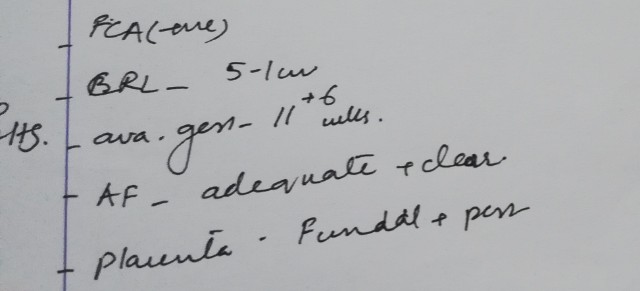 - FCA (-ove)
- CRL - 5-1 cm
- ava. gesn - 11 +6 weeks.
- AF - adequate + clear.
- Placenta - Fundal +